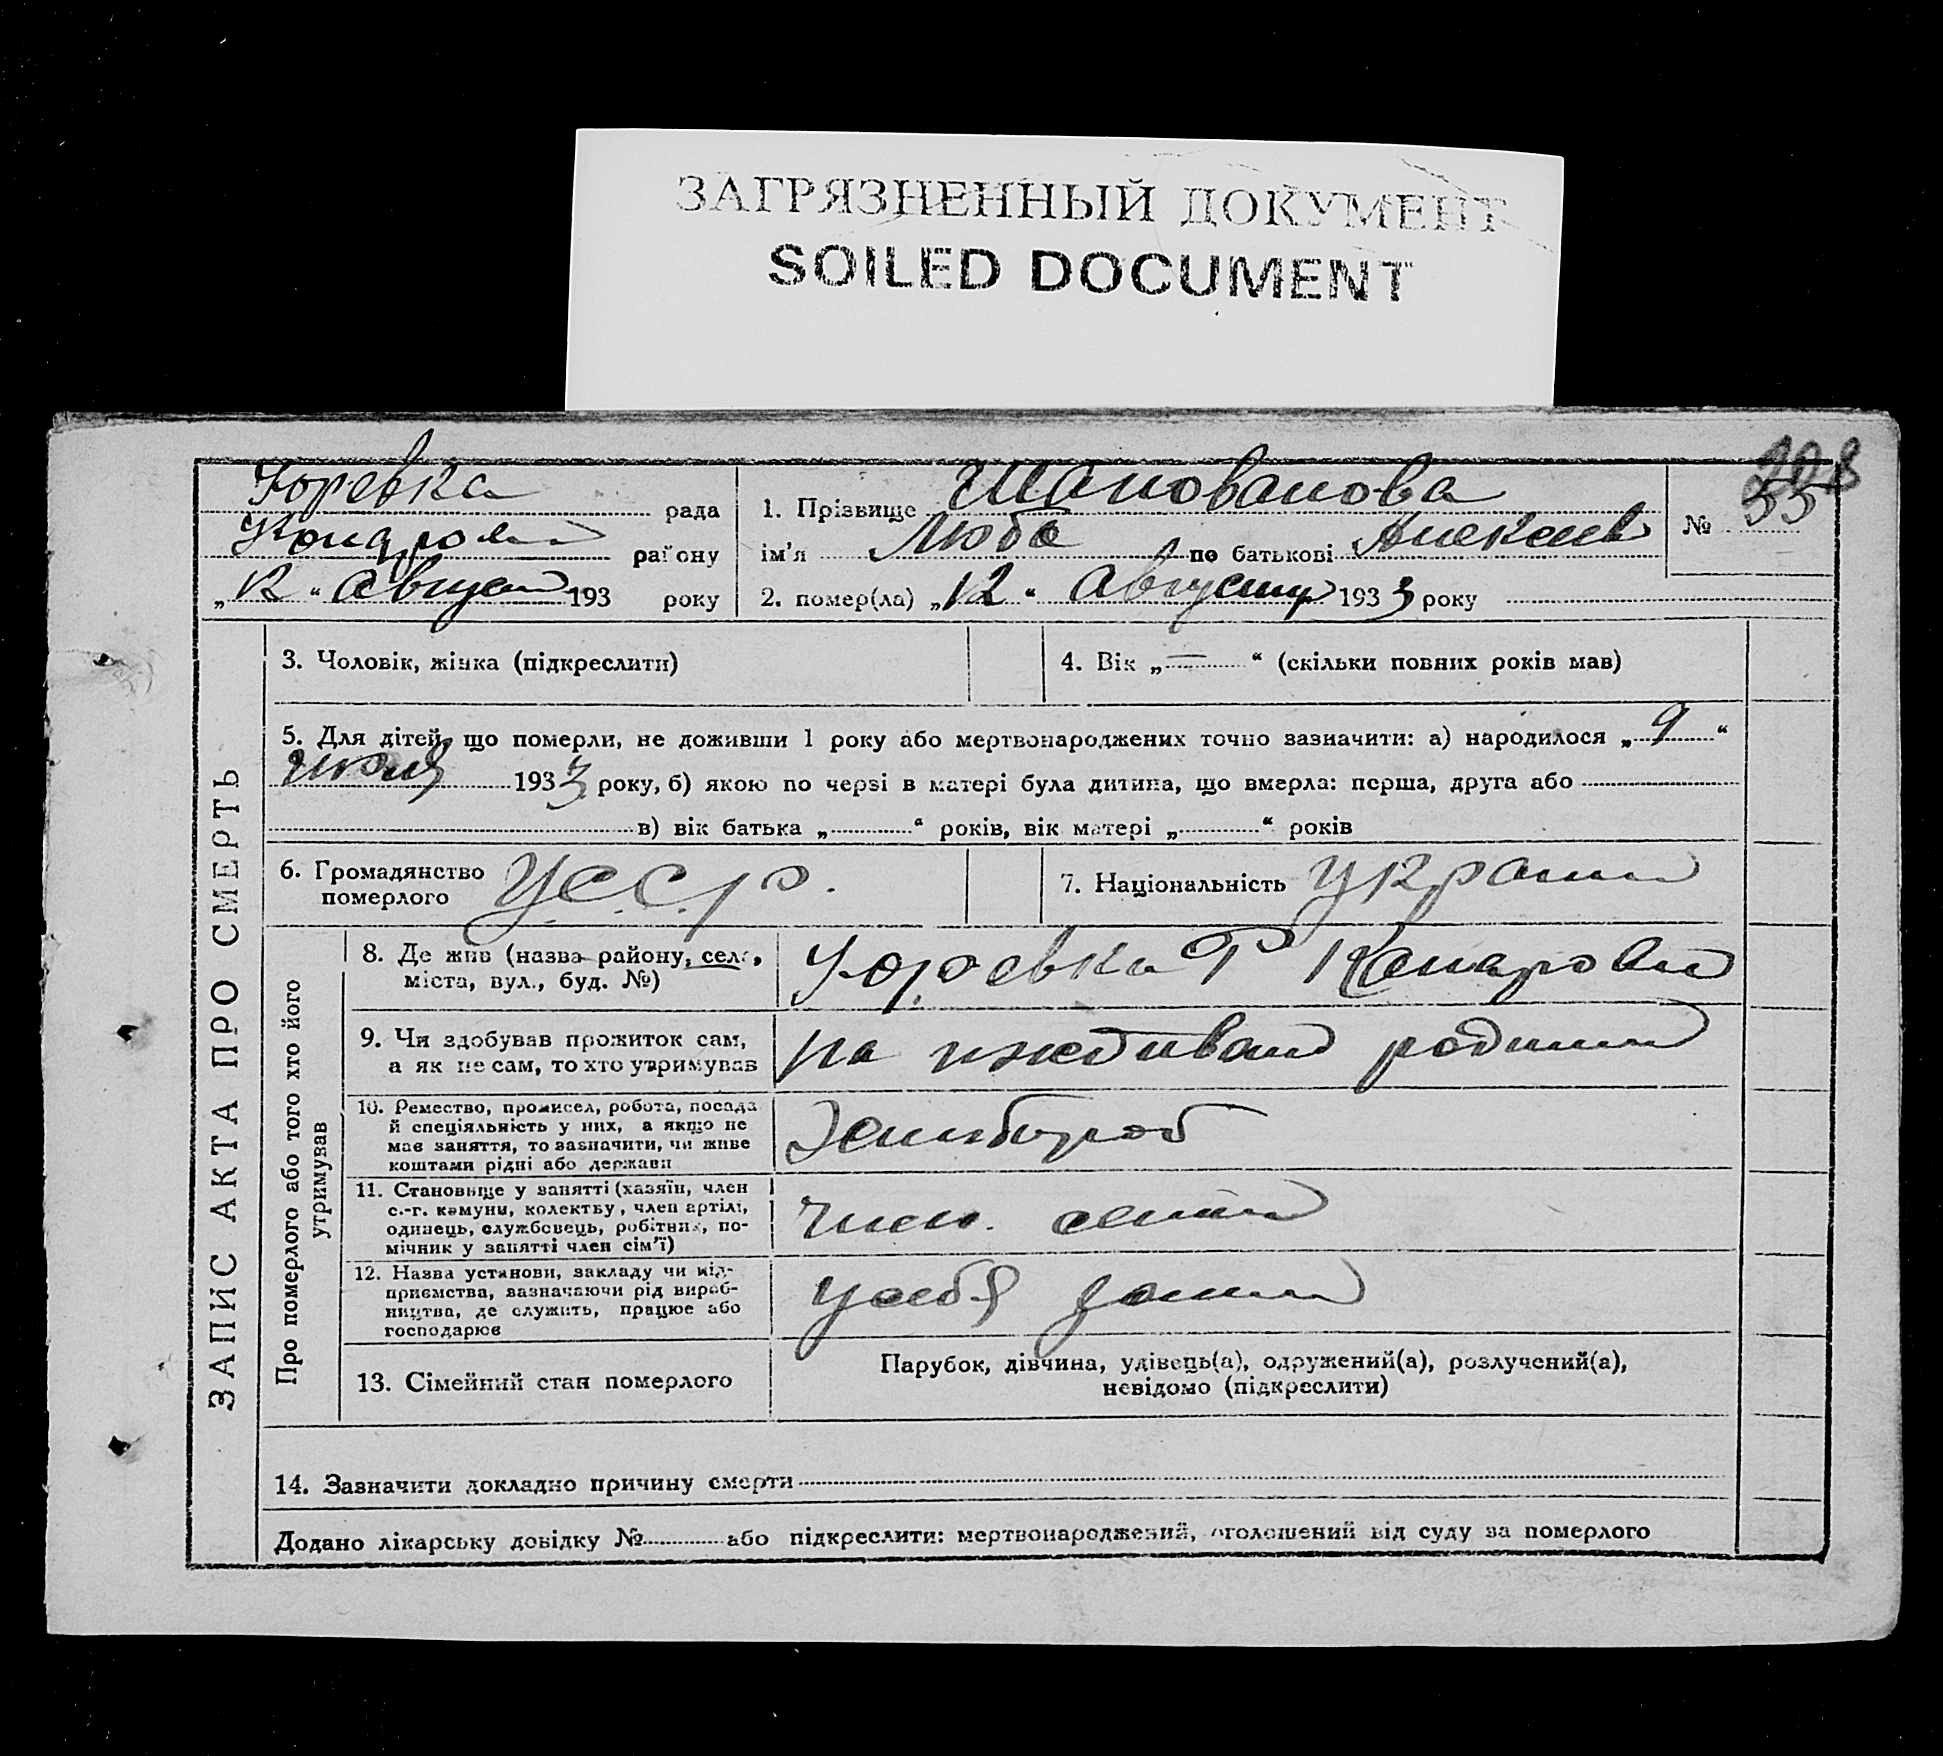 ЗАГРЯЗНЕННЫЙ ДОКУМЕНТ
SOILED DOCUMENT
208
55
№
Юревка рада
району
„12“ Август 193 року
1. Прізвище Шаповалова
ім'я Люба по батькові Алексеев
2. помер(ла) „12“ Август 1933 року
ЗАПИС АКТА ПРО СМЕРТЬ
3. Чоловік, жінка (підкреслити)
4. Вік „—“ (скільки повних років мав)
5. Для дітей, що померли, не доживши 1 року або мертвонароджених точно зазначити: а) народилося „9“
Июля 1933 року, б) якою по черзі в матері була дитина, що вмерла: перша, друга або
в) вік батька „ “ років, вік матері „ “ років
6. Громадянство
померлого
УССР.
7. Національність Украин
Про померлого або того хто його
утримував
8. Де жив (назва району, села,
міста, вул., буд. №)
Юревка Р
9. Чи здобував прожиток сам,
а як не сам, то хто утримував
на иждивени родини
10. Ремество, промисел, робота, посада
й спеціяльність у них, а якщо не
має заняття, то зазначити, чи живе
коштами рідні або держави
Хлебороб
11. Становище у занятті (хазяїн, член
с.-г. комуни, колективу, член артілі,
одинець, службовець, робітник, по-
мічник у занятті член сім'ї)
член. семьи
12. Назва установи, закладу чи під-
приємства, зазначаючи рід вироб-
ництва, де служить, працює або
господарює
у себя дома
13. Сімейний стан померлого
Парубок, дівчина, удівець(а), одружений(а), розлучений(а),
невідомо (підкреслити)
14. Зазначити докладно причину смерти
Додано лікарську довідку № або підкреслити: мертвонароджений, оголошений від суду за померлого